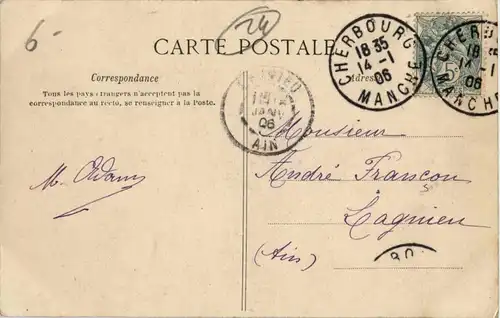 6-
24
CARTE POSTALE
CHERBOURG
18 35
14 -1
06
MANCHE
CHERBOURG
18
14 -1
06
MANCHE
Correspondance
Tous les pays étrangers n'acceptent pas la
correspondance au recto, se renseigner à la Poste.
Adresse
06
AIN
Monsieur
M. Adam
André Françon
Lagnieu
(Ain)